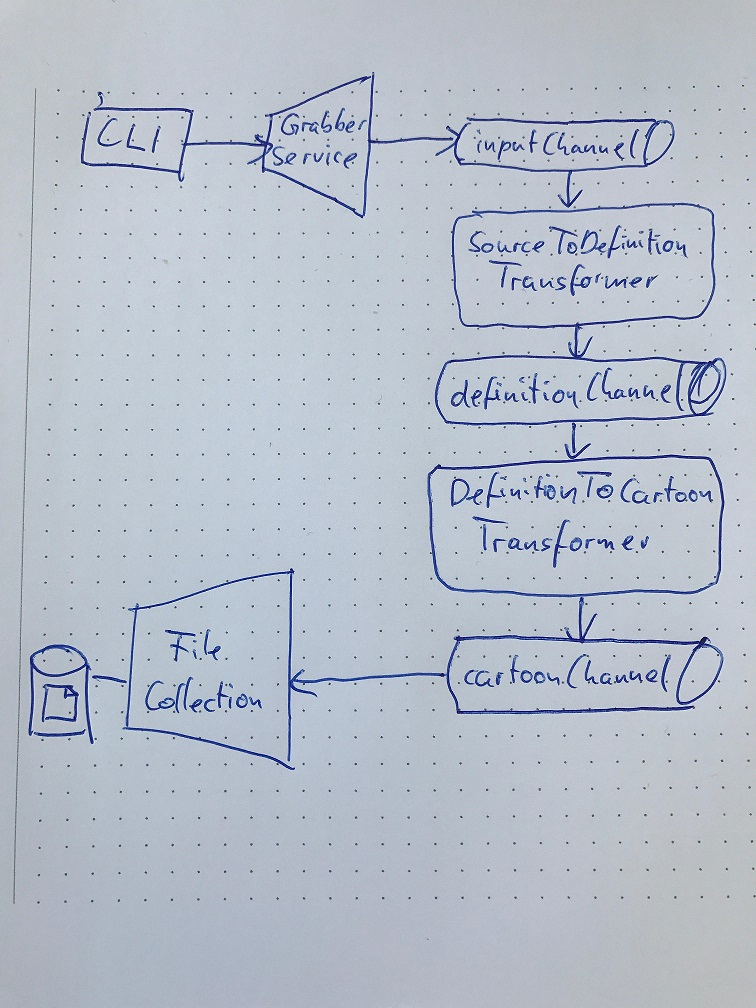 CLI
Grabber
Service
inputChannel
SourceToDefinition
Transformer
definitionChannel
DefinitionToCartoon
Transformer
cartoonChannel
File
Collection